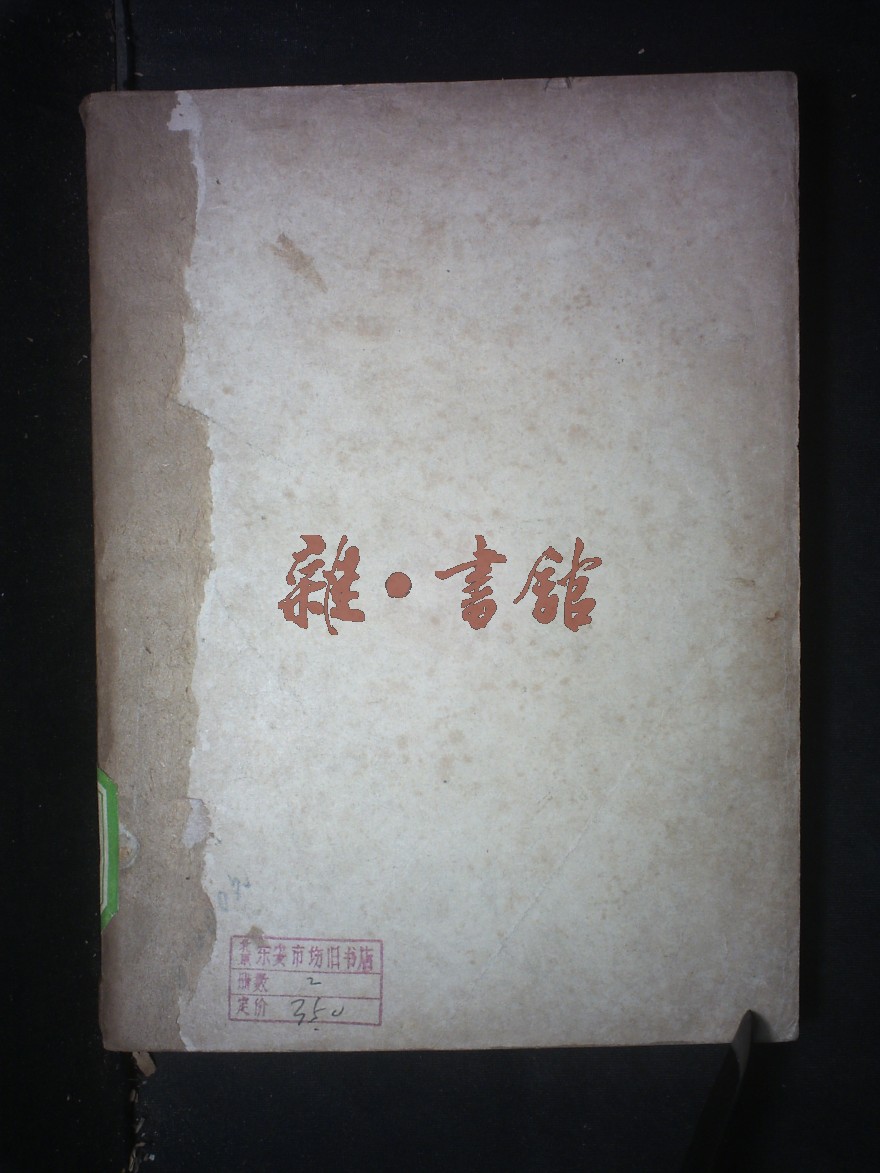 雜·書館
北京东安市场旧书店
册数 2
定价 3.50